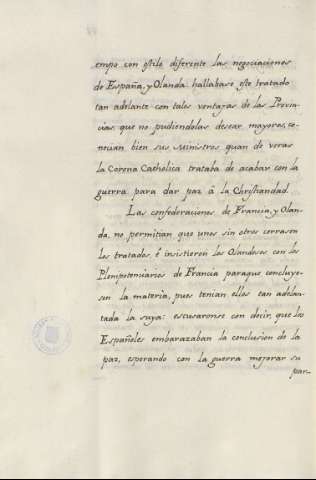 empo con estilo diferente las negociaciones
de España, y Olanda hallabase este tratado
tan adelante con tales ventajas de las Provin-
cias, que no pudiendolas desear mayores, co-
nocian bien sus Ministros quan de veras
la Corona Catholica trataba de acabar con la
guerra para dar paz à la Christiandad.
Las confederaciones de Francia, y Olan-
da, no permitian que unos sin otros cerrasen
los tratados, è insistieron los Olandeses con los
Plenipotenciarios de Francia paraque concluye-
sen la materia, pues tenian ellos tan adelan-
tada la suya: escusaronse con decir, que los
Españoles embarazaban la conclusion de la
paz, esperando con la guerra mejorar su
par-